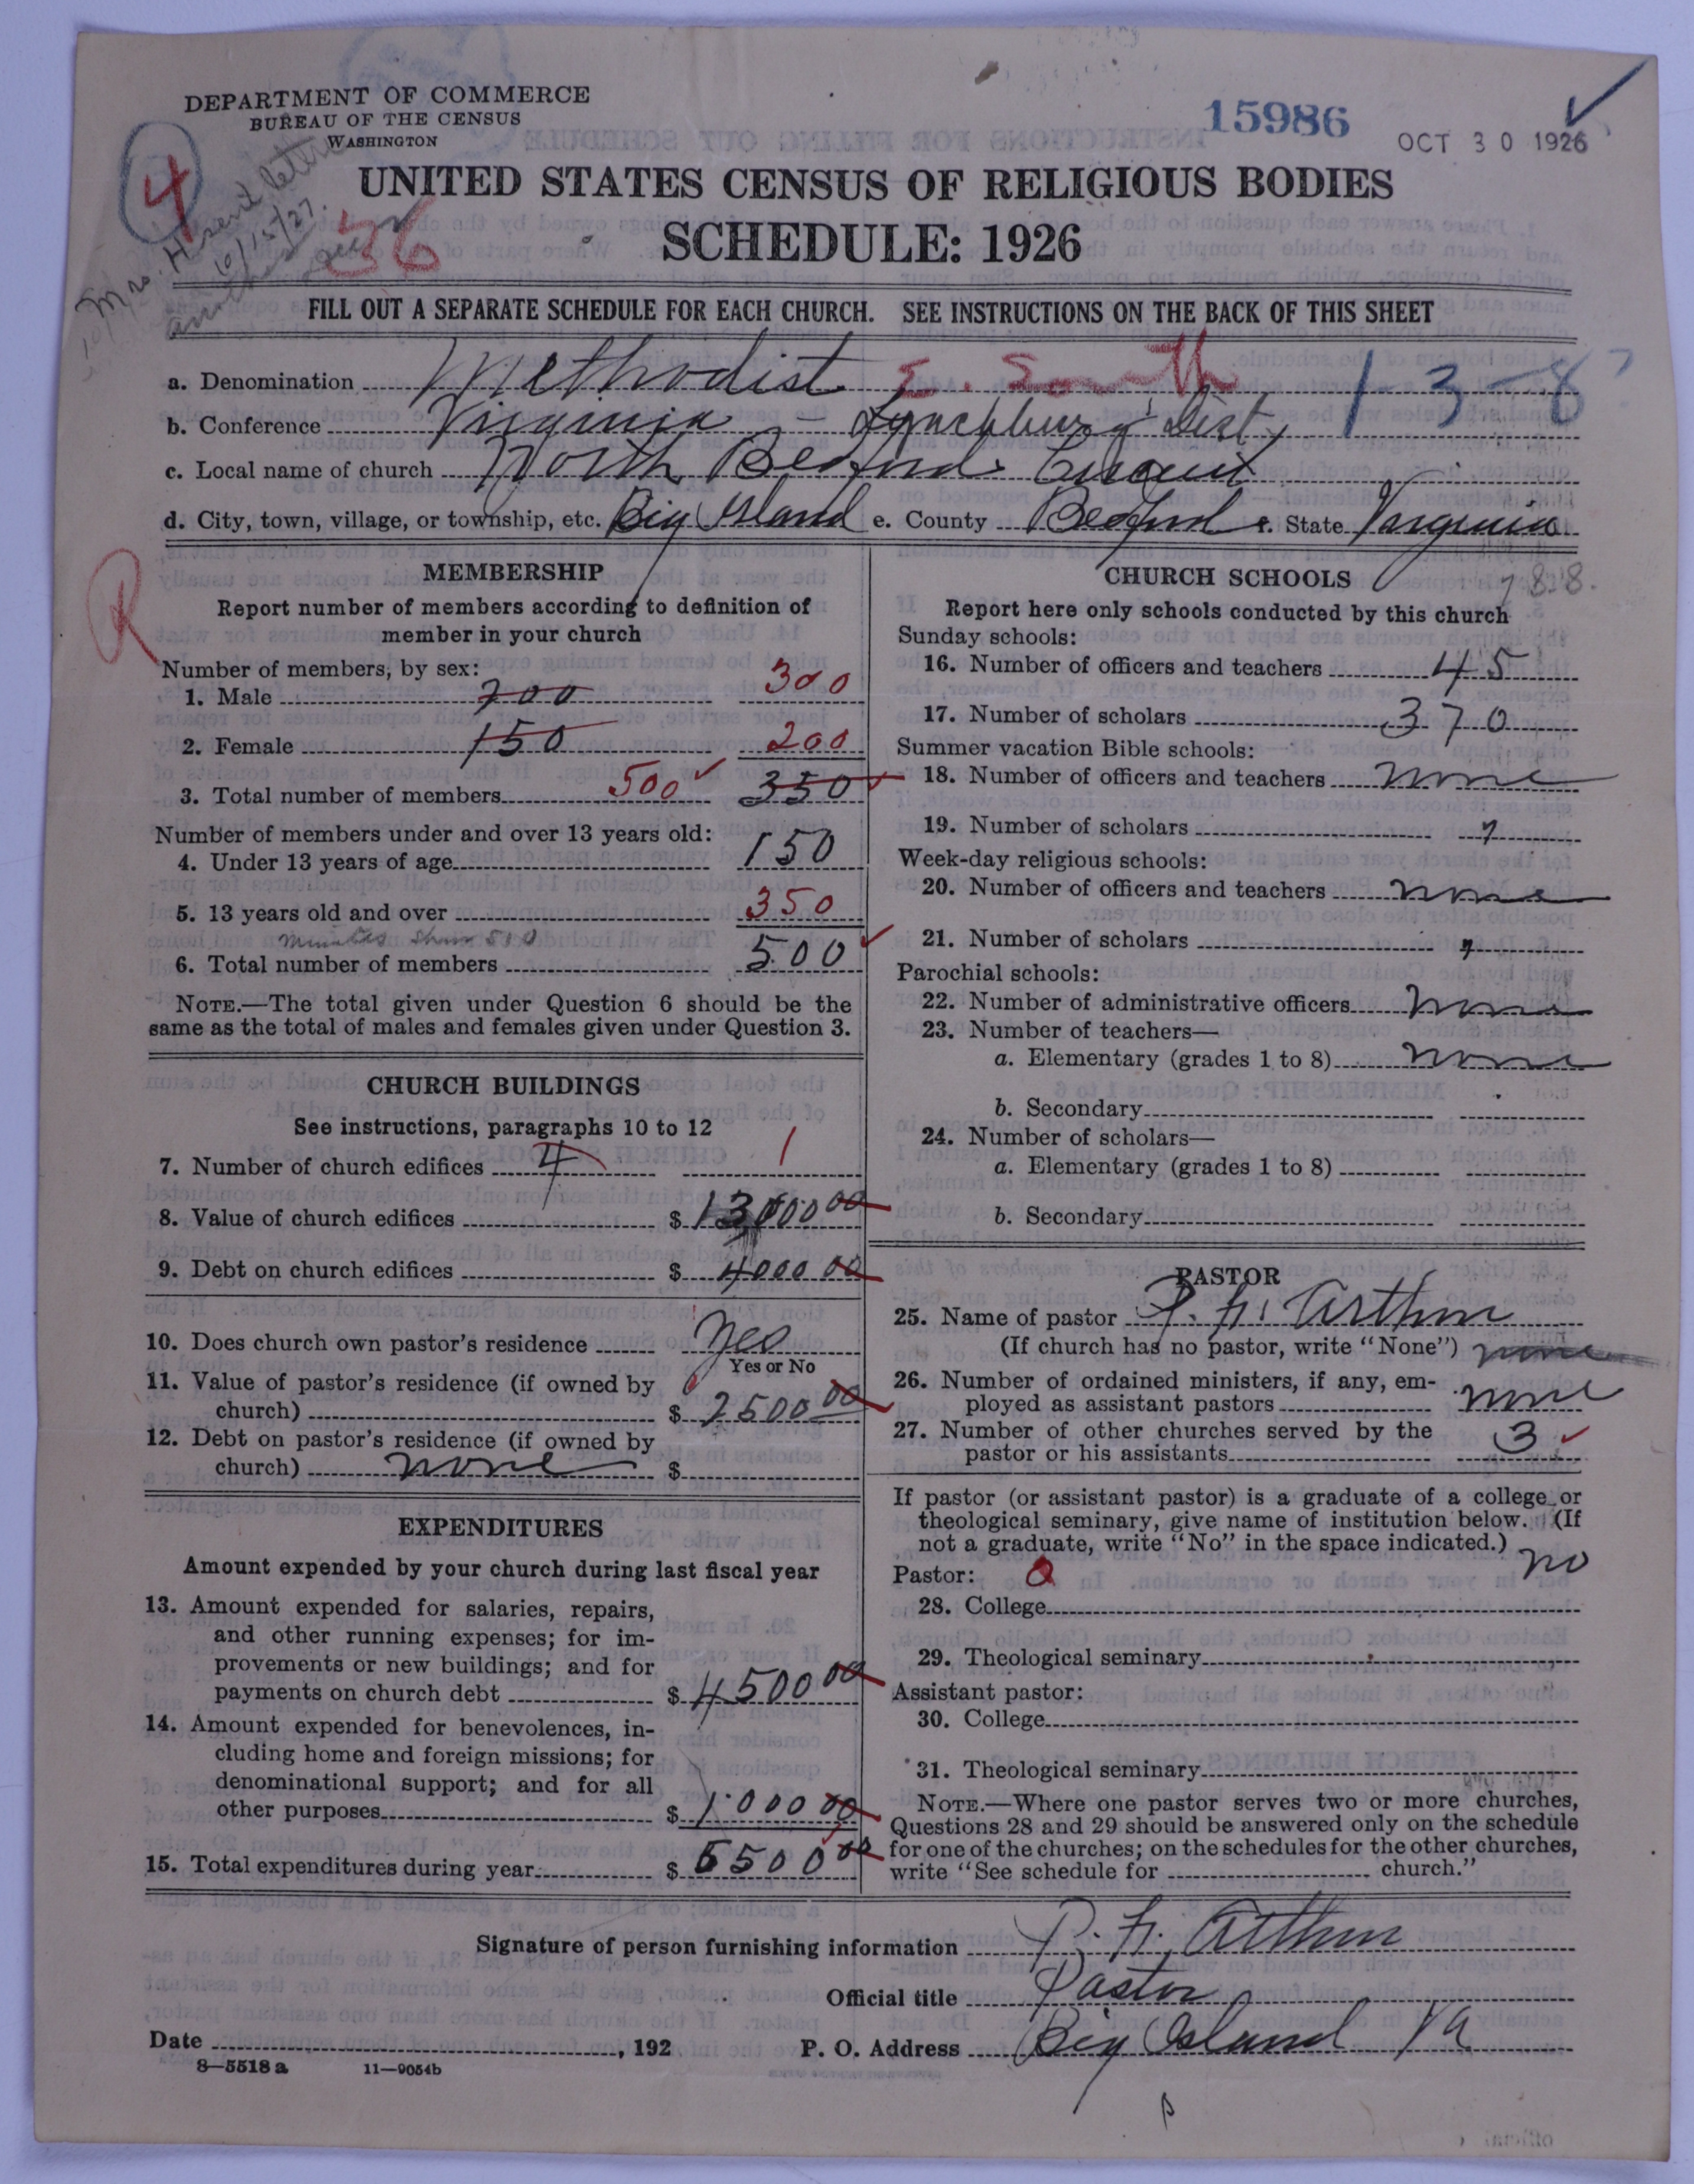 DEPARTMENT OF COMMERCE
BUREAU OF THE CENSUS
WASHINGTON
15986
OCT 30 1926
4
36
Mrs. H. sent letter
10/15/27.
UNITED STATES CENSUS OF RELIGIOUS BODIES
SCHEDULE: 1926
FILL OUT A SEPARATE SCHEDULE FOR EACH CHURCH. SEE INSTRUCTIONS ON THE BACK OF THIS SHEET
a. Denomination Methodist E. South 1-3-8
b. Conference Virginia - Lynchburg Dist,
c. Local name of church North Bedford Circuit
d. City, town, village, or township, etc. Big Island e. County Bedford f. State Virginia
R
MEMBERSHIP
Report number of members according to definition of
member in your church
Number of members, by sex:
1. Male 200 300
2. Female 150 200
3. Total number of members 500 350
Number of members under and over 13 years old:
4. Under 13 years of age 150
5. 13 years old and over 350
minutes show 510
6. Total number of members 500
NOTE.—The total given under Question 6 should be the
same as the total of males and females given under Question 3.
CHURCH BUILDINGS
See instructions, paragraphs 10 to 12
7. Number of church edifices 4 1
8. Value of church edifices $ 13000 00
9. Debt on church edifices $ 4000 00
10. Does church own pastor's residence Yes
Yes or No
11. Value of pastor's residence (if owned by
church) $ 2500 00
12. Debt on pastor's residence (if owned by
church) none $
EXPENDITURES
Amount expended by your church during last fiscal year
13. Amount expended for salaries, repairs,
and other running expenses; for im-
provements or new buildings; and for
payments on church debt $ 4500 00
14. Amount expended for benevolences, in-
cluding home and foreign missions; for
denominational support; and for all
other purposes $ 1000 00
15. Total expenditures during year $ 5500 00
CHURCH SCHOOLS
788.
Report here only schools conducted by this church
Sunday schools:
16. Number of officers and teachers 45
17. Number of scholars 370
Summer vacation Bible schools:
18. Number of officers and teachers none
19. Number of scholars "
Week-day religious schools:
20. Number of officers and teachers none
21. Number of scholars "
Parochial schools:
22. Number of administrative officers none
23. Number of teachers—
a. Elementary (grades 1 to 8) none
b. Secondary
24. Number of scholars—
a. Elementary (grades 1 to 8)
b. Secondary
PASTOR
25. Name of pastor P. H. Arthur
(If church has no pastor, write "None") none
26. Number of ordained ministers, if any, em-
ployed as assistant pastors none
27. Number of other churches served by the
pastor or his assistants 3
If pastor (or assistant pastor) is a graduate of a college or
theological seminary, give name of institution below. (If
not a graduate, write "No" in the space indicated.) no
Pastor:
28. College
29. Theological seminary
Assistant pastor:
30. College
31. Theological seminary
NOTE.—Where one pastor serves two or more churches,
Questions 28 and 29 should be answered only on the schedule
for one of the churches; on the schedules for the other churches,
write "See schedule for church."
Signature of person furnishing information P. H. Arthur
Official title Pastor
Date , 192 P. O. Address Big Island Va
8—5518 a 11—9054b